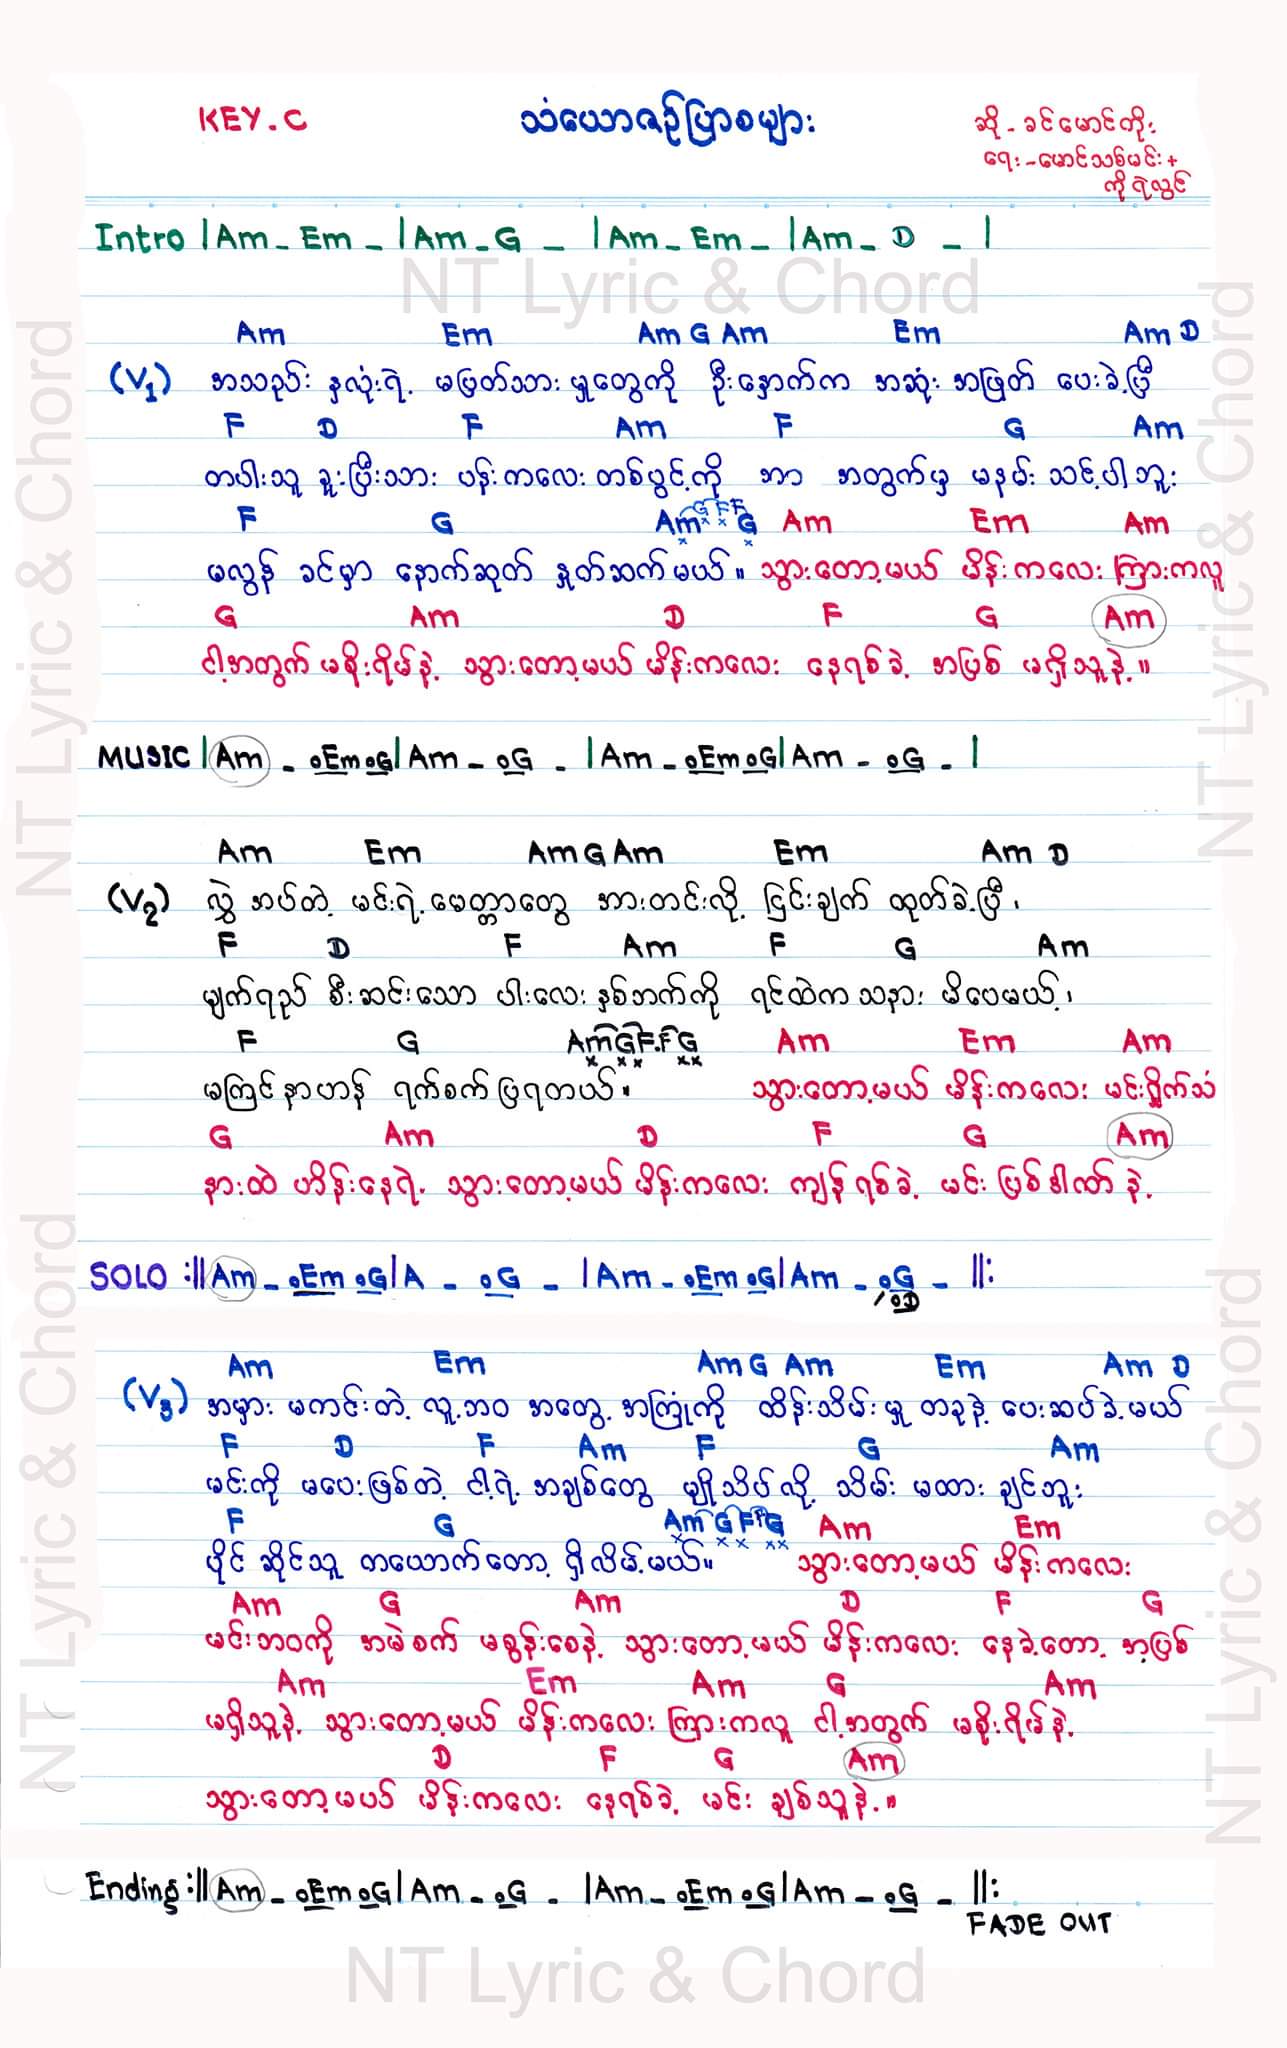 KEY. C
သံယောဇဉ်ပြာစများ
ဆို - ခင်မောင်တိုး
ရေး - မောင်သစ်မင်း +
ကိုရဲလွင်
Intro | Am - Em - | Am - G - | Am - Em - | Am - D - |
NT Lyric & Chord
Am Em Am G Am Em Am D
(V1) အသည်း နှလုံးရဲ့ မပြတ်သား မှုတွေကို ဦးနှောက်က အဆုံး အဖြတ် ပေးခဲ့ပြီ
F D F Am F G Am
တပါးသူ ခူးပြီးသား ပန်းကလေး တစ်ပွင့်ကို ဘာ အတွက်မှ မနမ်း သင့်ပါဘူး
F G Am G F F G Am Em Am
မလွန် ခင်မှာ နောက်ဆုတ် နှုတ်ဆက်မယ်။ သွားတော့မယ် မိန်းကလေး ကြားကလူ
G Am D F G Am
ငါ့အတွက် မစိုးရိမ်နဲ့ သွားတော့မယ် မိန်းကလေး နေရစ်ခဲ့ အပြစ် မရှိသူနဲ့။
MUSIC | Am - oEm oG | Am - oG - | Am - oEm oG | Am - oG - |
Am Em Am G Am Em Am D
(V2) လွှဲ အပ်တဲ့ မင်းရဲ့မေတ္တာတွေ အားတင်းလို့ ငြင်းချက် ထုတ်ခဲ့ပြီ၊
F D F Am F G Am
မျက်ရည် စီးဆင်းသော ပါးလေး နှစ်ဘက်ကို ရင်ထဲက သနား မိပေမယ့်၊
F G Am G F. F G Am Em Am
မကြင်နာဟန် ရက်စက်ပြရတယ်။ သွားတော့မယ် မိန်းကလေး မင်းရှိုက်သံ
G Am D F G Am
နားထဲ ဟိန်းနေရဲ့ သွားတော့မယ် မိန်းကလေး ကျန်ရစ်ခဲ့ မင်း ပြစ်ဒါဏ် နဲ့
SOLO :|| Am - oEm oG | A - oG - | Am - oEm oG | Am - oG - ||:
, oD
Am Em Am G Am Em Am D
(V3) အမှား မကင်းတဲ့ လူ့ဘဝ အတွေ့ အကြုံကို ထိန်းသိမ်းမှု တခုနဲ့ ပေးဆပ်ခဲ့မယ်
F D F Am F G Am
မင်းကို မပေးဖြစ်တဲ့ ငါ့ရဲ့ အချစ်တွေ မျှိုသိပ်လို့ သိမ်း မထား ချင်ဘူး
F G Am G F F G Am Em
ပိုင် ဆိုင်သူ တယောက်တော့ ရှိလိမ့်မယ်။ သွားတော့မယ် မိန်းကလေး
Am G Am D F G
မင်းဘဝကို အမဲစက် မစွန်းစေနဲ့ သွားတော့မယ် မိန်းကလေး နေခဲ့တော့ အပြစ်
Am Em Am G Am
မရှိသူနဲ့ သွားတော့မယ် မိန်းကလေး ကြားကလူ ငါ့အတွက် မစိုးရိမ်နဲ့
D F G Am
သွားတော့မယ် မိန်းကလေး နေရစ်ခဲ့ မင်း ချစ်သူနဲ့။
Ending :|| Am - oEm oG | Am - oG - | Am - oEm oG | Am - oG - ||:
FADE OUT
NT Lyric & Chord
NT Lyric & Chord
NT Lyric & Chord
NT Lyric & Chord
NT Lyric & Chord